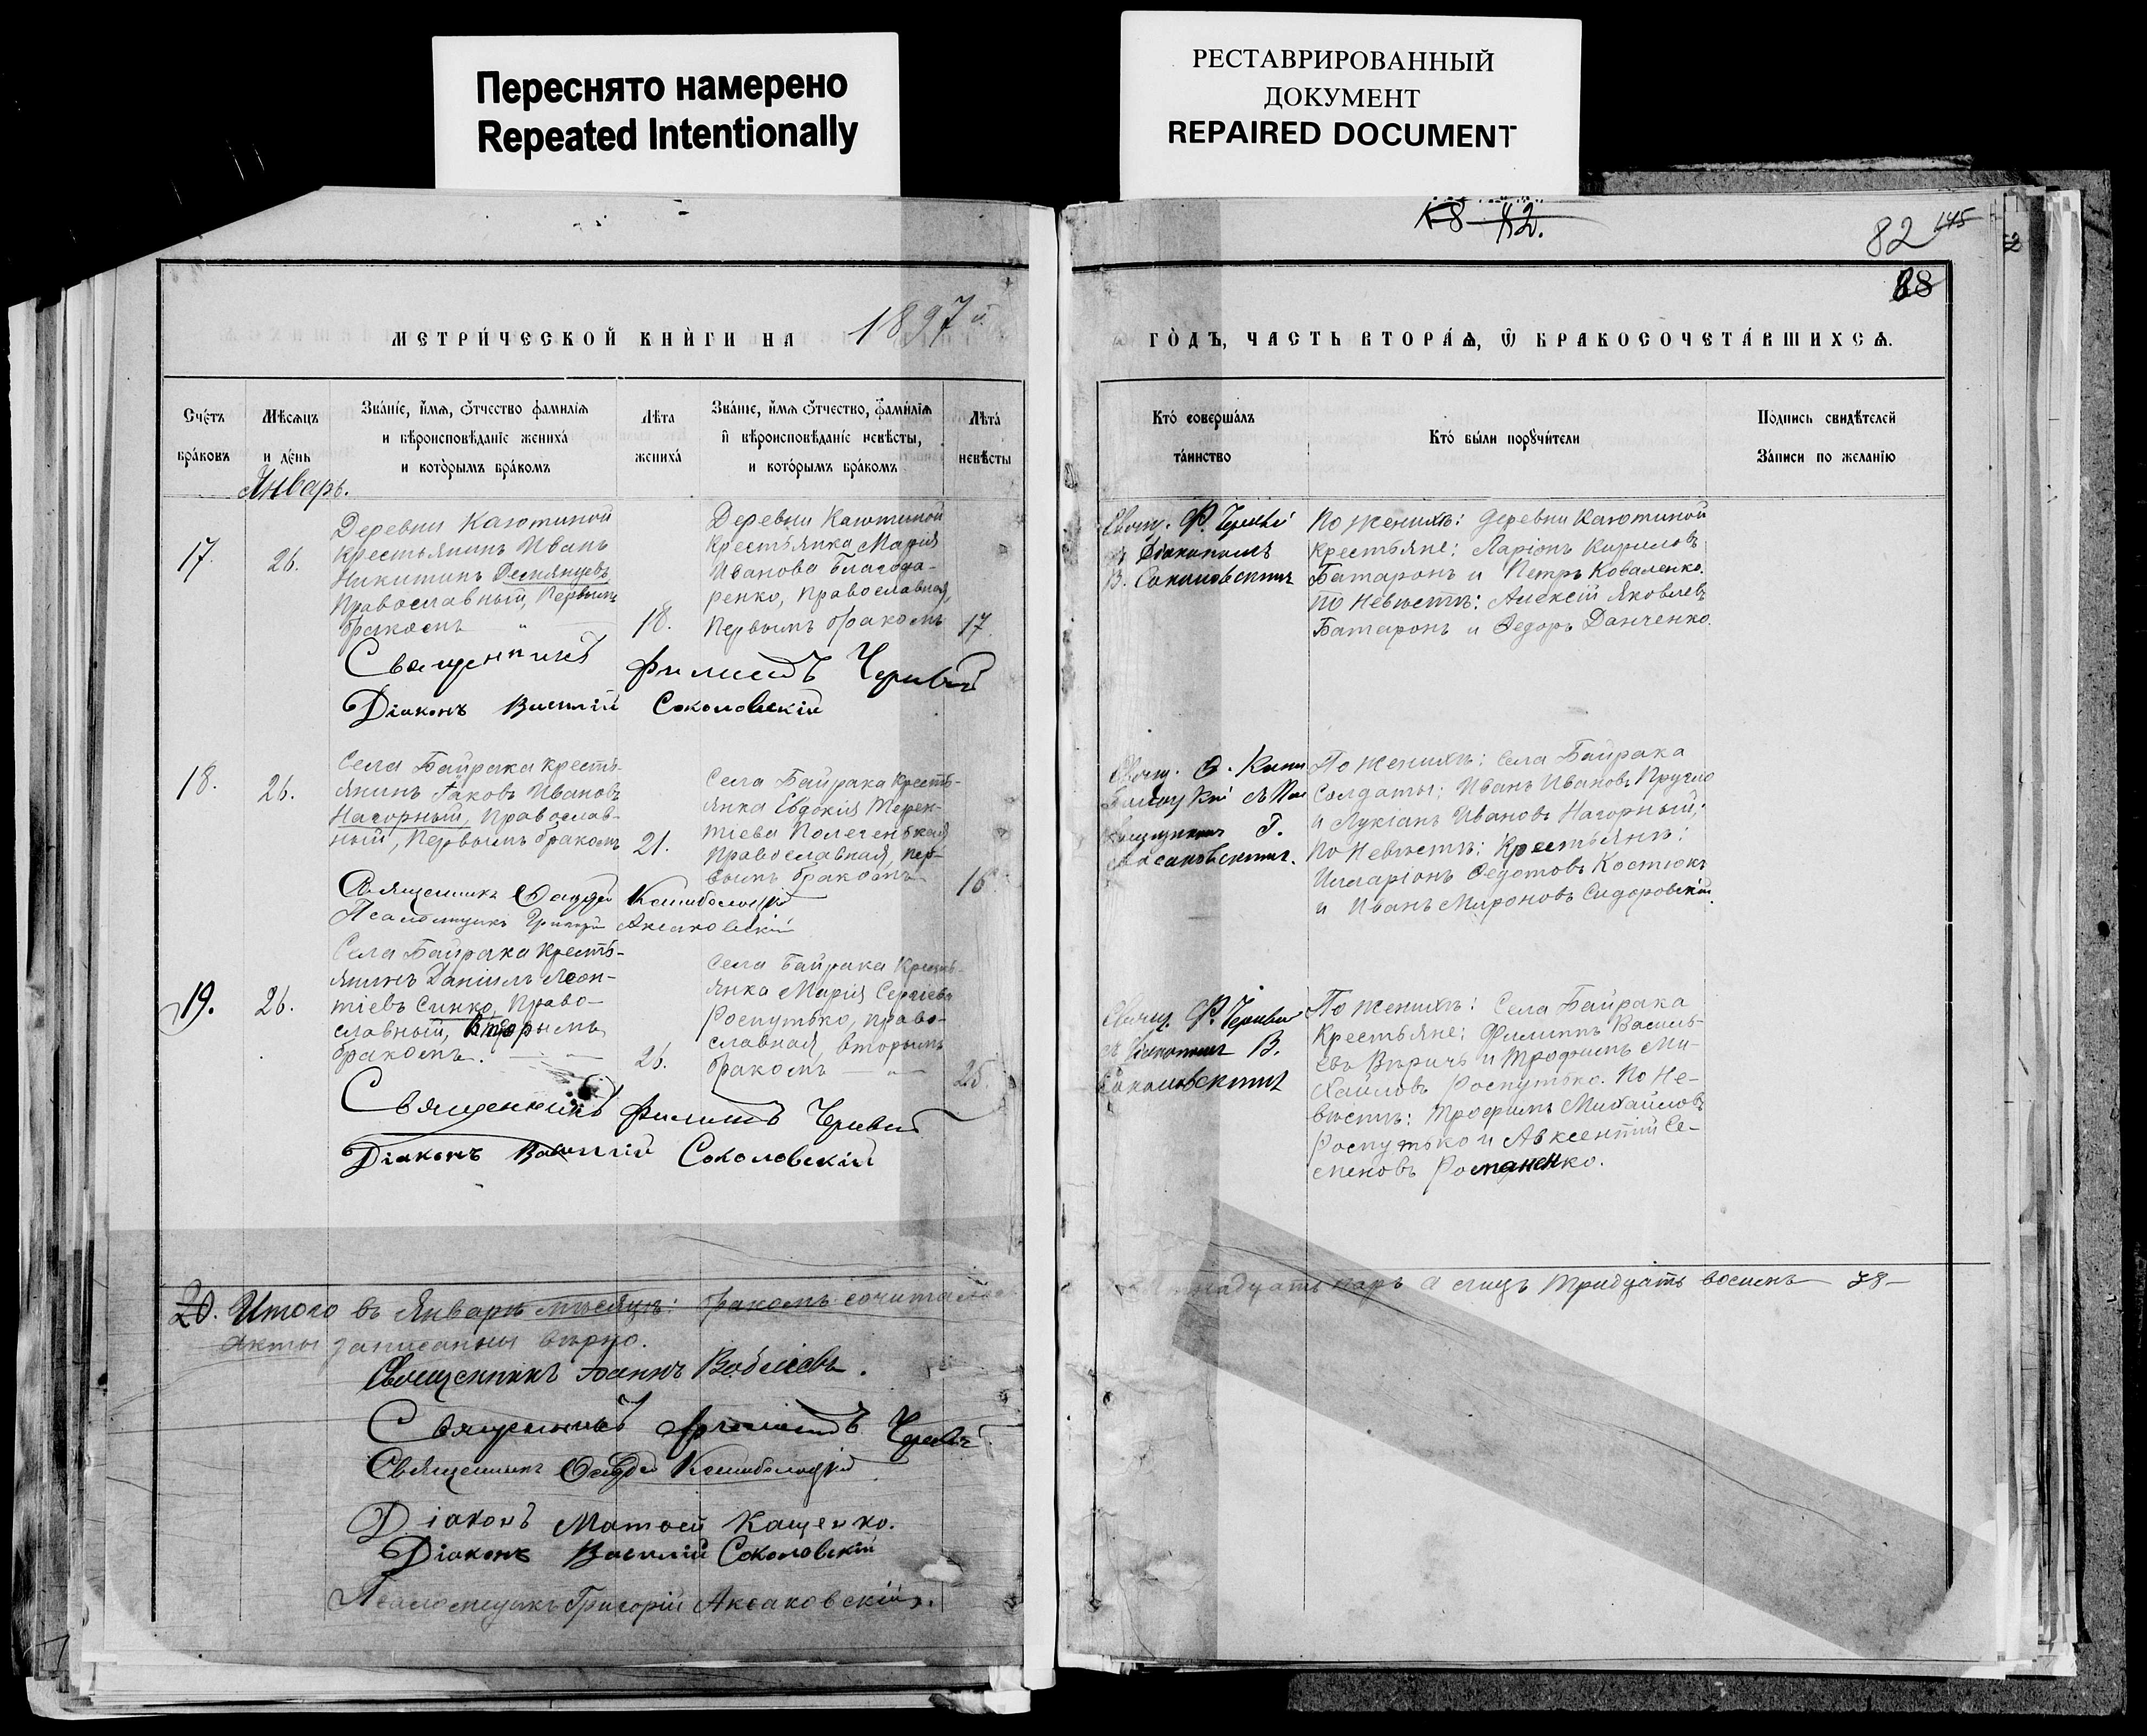 Переснято намерено
Repeated Intentionally
РЕСТАВРИРОВАННЫЙ
ДОКУМЕНТ
REPAIRED DOCUMENT
82
МЕТРИ́ЧЕСКОЙ КНИ́ГИ НА 1897 й
ГО́ДЪ, ЧАСТЬ ВТОРА́Ѧ, Ѿ БРАКОСОЧЕТА́ВШИХСѦ.
Сче́тъ
бра́ковъ
Мѣ́сяцъ
и де́нь
Зва́нїе, и҆́мѧ, ѻ҆́тчество фами́лїѧ
и вѣроисповѣ́данїе жениха́
и кото́рымъ бра́комъ
Лѣ́та
жениха́
Зва́нїе, и҆́мѧ ѻ҆́тчество, фами́лїѧ
и҆ вѣроисповѣ́данїе невѣ́сты,
и кото́рымъ бра́комъ
Лѣ́та
невѣ́сты
Кто́ соверша́лъ
та́инство
Кто́ бы́ли порꙋчи́тели
По́дпись свидѣ́телей
За́писи по жела́нїю
Январь.
17.
26.
Деревни Каютиной
крестьянинъ Иванъ
Никитинъ Десмянцевъ,
Православный, Первымъ
бракомъ "
18.
Деревни Каютиной
крестьянка Марія
Иванова Благода-
ренко, Православная,
Первымъ бракомъ
17.
Свящ. Ф. Черивій
Діакономъ
В. Соколовскимъ
По женихѣ: деревни Каютиной
крестьяне: Ларіонъ Кириловъ
Батаронъ и Петръ Коваленко.
По Невѣстѣ: Алексій Яковлевъ
Батаронъ и Ѳедоръ Данченко.
Священникъ Филиппъ Черивій
Діаконъ Василій Соколовскій
18.
26.
Села Байрака кресть-
янинъ Іаковъ Ивановъ
Нагорный, Православ-
ный, Первымъ бракомъ
21.
Села Байрака Кресть-
янка Евдокія Терен-
тіева
Православная, пер-
вымъ бракомъ
16.
По женихѣ: Села Байрака
Солдаты: Иванъ Ивановъ Пругло
и Лукіанъ Ивановъ Нагорный;
По Невѣстѣ: Крестьянѣ:
Илларіонъ Ѳедотовъ Костюкъ
и Иванъ Мироновъ Сидоровскій.
Священникъ
Псаломщикъ Григорій Аксаковскій
19.
26.
Села Байрака кресть-
янинъ Даніилъ Леон-
тіевъ Синко, Право-
славный, Вторымъ
бракомъ.
26.
Села Байрака Кресть-
янка Марія Сергіева
Роспутько, право-
славная, вторымъ
бракомъ
25.
Свящ. Ф. Черивій
съ Діакономъ В.
Соколовскимъ
По женихѣ: Села Байрака
Крестьяне: Филиппъ Василь-
евъ Вѣричъ и Трофимъ Ми-
хайловъ Роспутько. По Не-
вѣстѣ: Трофимъ Михайловъ
Роспутько и Авксентій Се-
меновъ Романенко.
Священникъ Филиппъ Черивій
Діаконъ Василій Соколовскій
20. Итого въ Январѣ мѣсяцѣ: бракомъ сочиталось
надцать паръ а лицъ тридцать восемь 38
Акты записаны вѣрно.
Священникъ Іоаннъ
Священникъ Филиппъ Черивій
Священникъ
Діаконъ Матѳей Кащенко.
Діаконъ Василій Соколовскій
Псаломщикъ Григорій Аксаковскій.